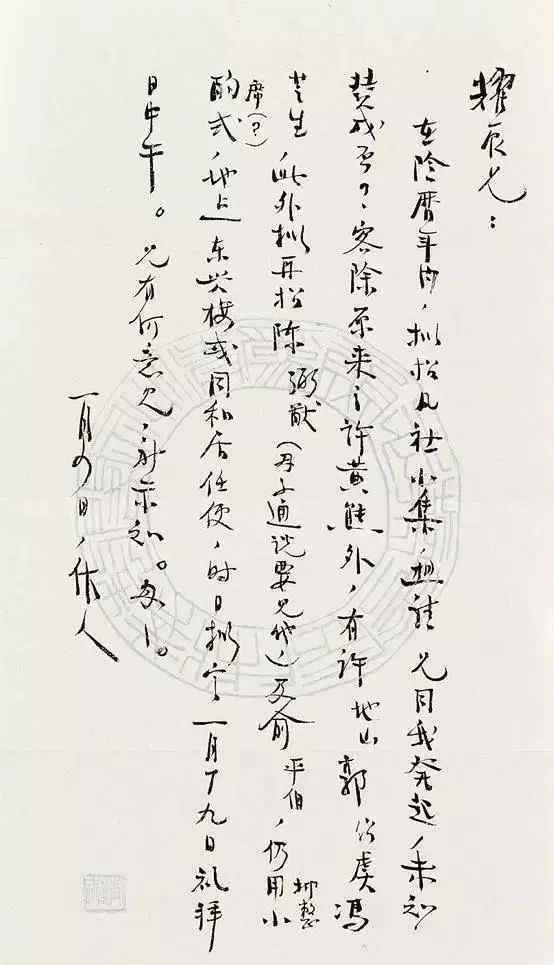 耀辰兄：
在阴历年内，拟招凡社小集，想请兄同我発起，未知
赞成否？客除原来之许黄熊外，有许地山郭绍虞冯
芝生，此外拟再招陈弼猷（尹子通说要见他）及俞平伯，仍用小
抑整
席（？）
酌式，地点东兴楼或同和居任便，时日拟定一月十九日礼拜
日中午。兄有何意见，祈示知。匆匆。
一月 日，作人